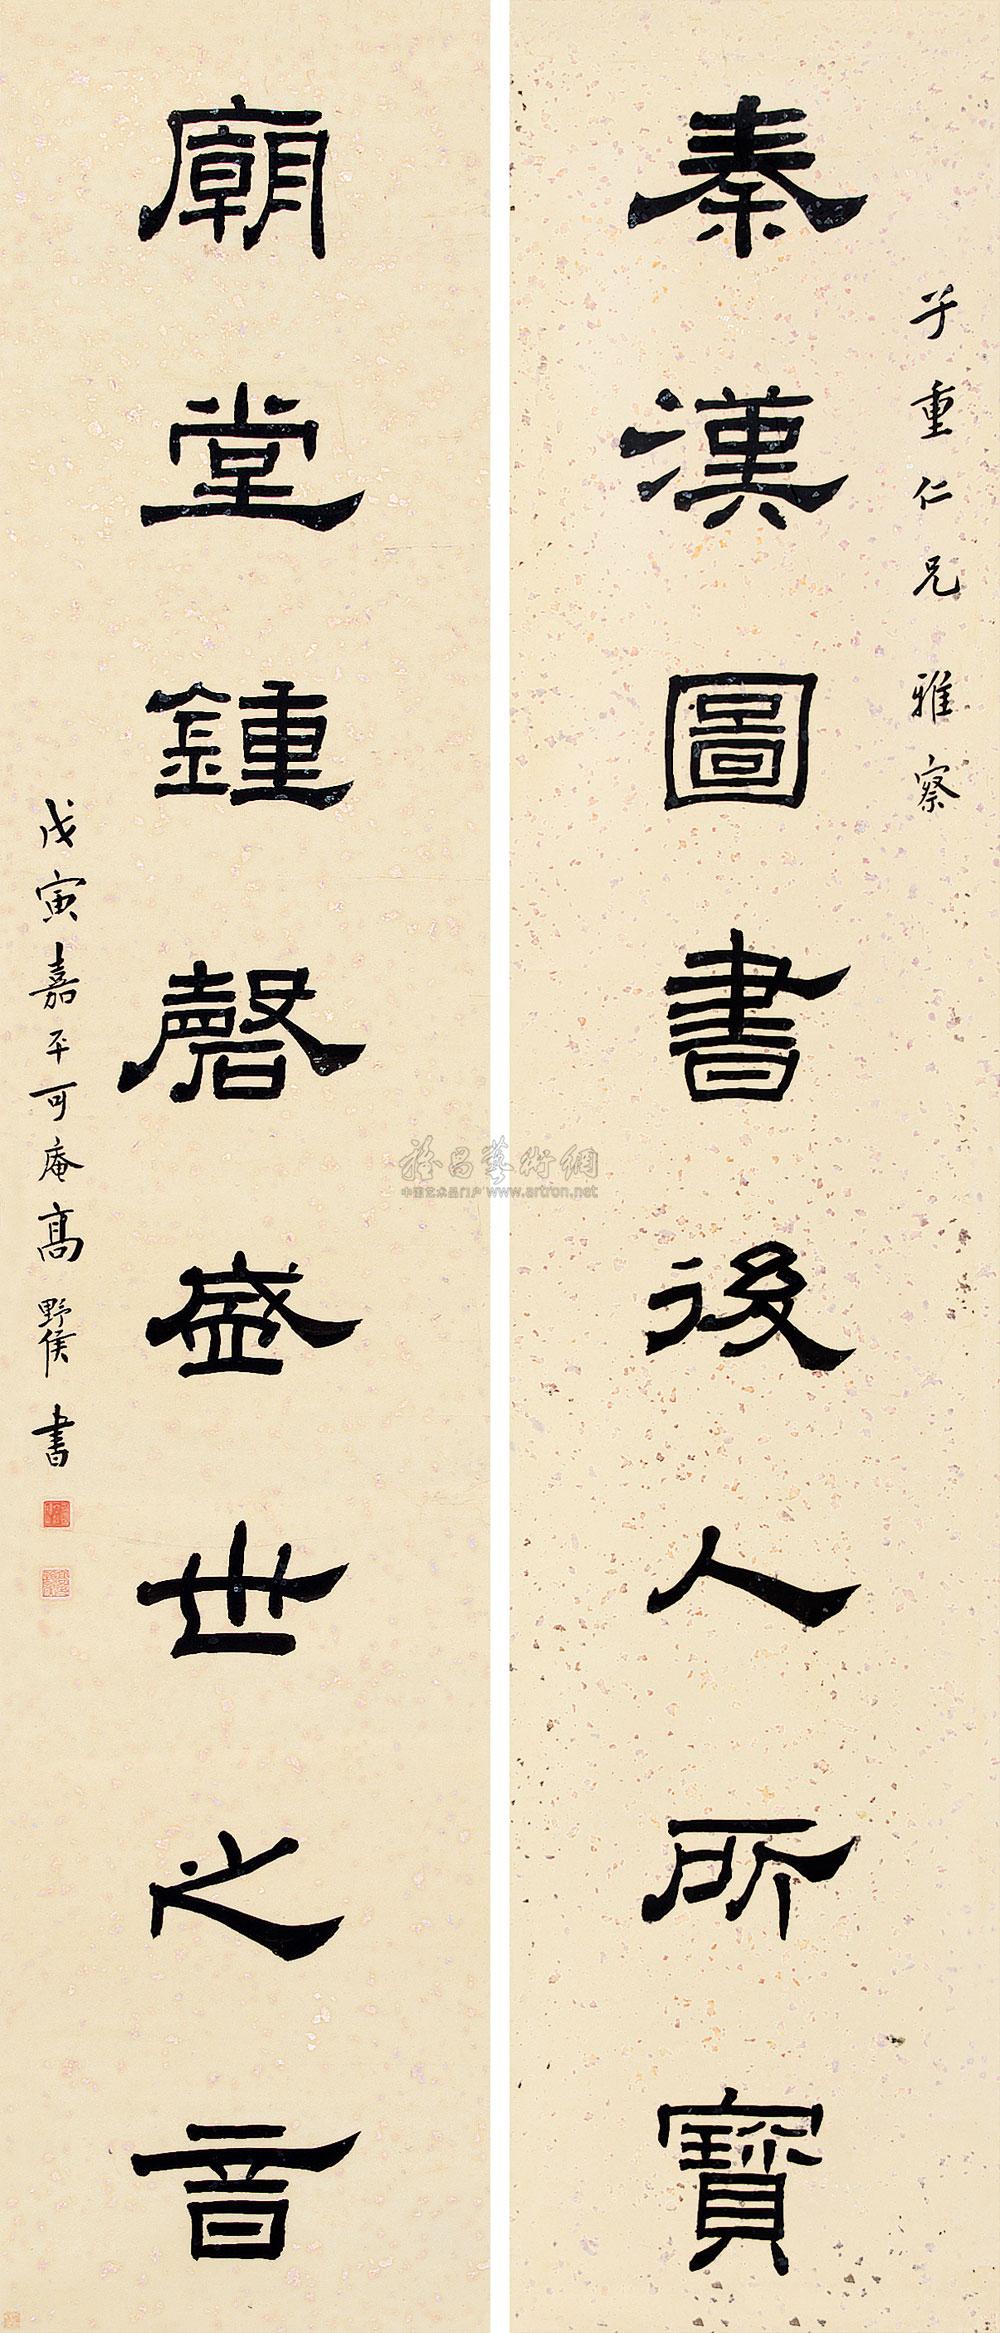 秦漢圖書後人所寶
子重仁兄雅察
廟堂鍾磬盛世之音
戊寅嘉平可庵高野侯書
雅昌藝術網
中国艺术品门户 www.artron.net